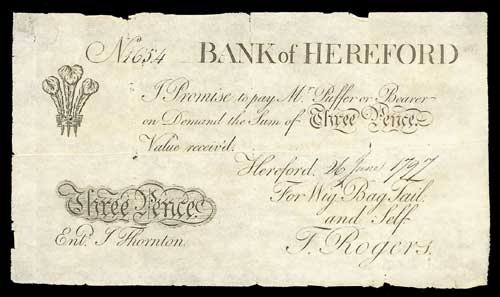 No. 1654 BANK of HEREFORD
I Promise to pay Mr. Puffer or Bearer
on Demand the Sum of Three Pence.
Value receiv'd.
Hereford. 26 June 1797
For Wig, Bag Tail.
and Self
Three Pence.
Entd. J Thornton.
T. Rogers.